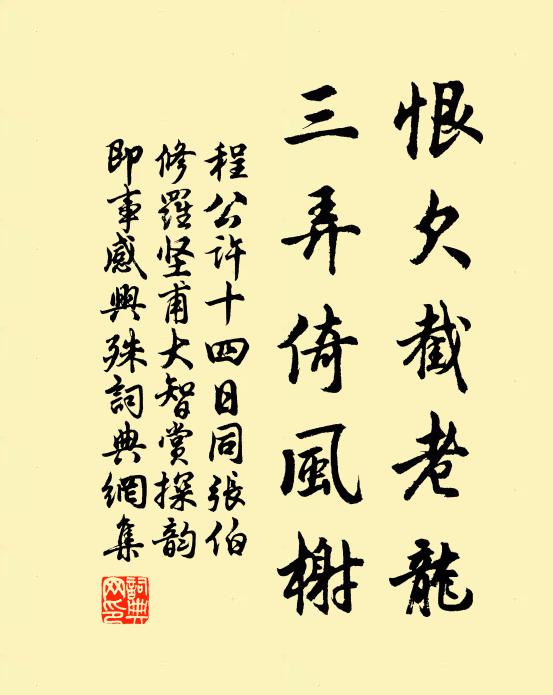 恨欠截老龍
三弄倚風榭
程公許十四日同張伯
修羅坚甫大智賞探韵
即事感興殊詞典網集
詞典網印